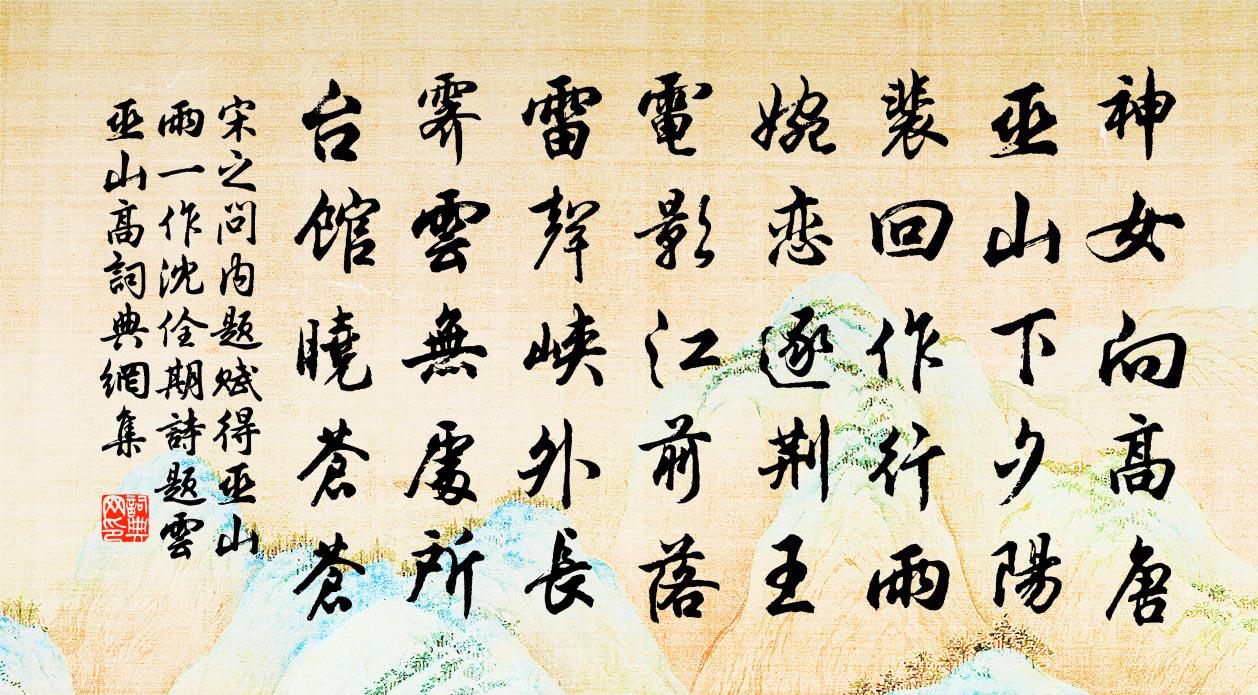 神女向高唐
巫山下夕陽
裴回作行雨
婉恋逐荆王
電影江前落
雷聲峽外長
霽雲無處所
台館曉蒼蒼
宋之問内題賦得巫山
雨一作沈佺期詩題雲
巫山高詞典網集
詞典網印